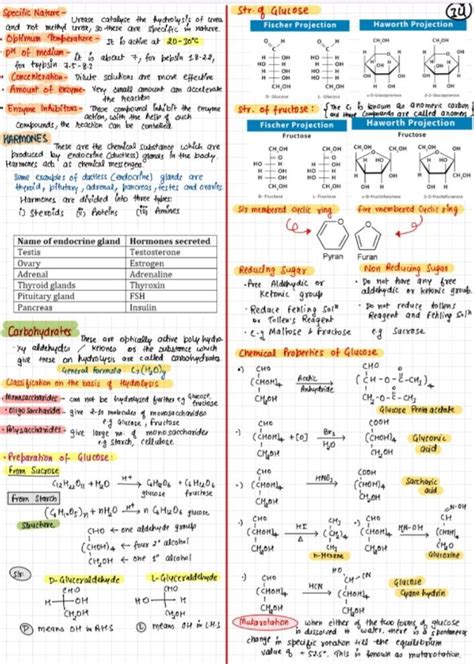 Specific Nature - Urease catalyse the hydrolysis of urea
and not methyl urea, so these are specific in nature.
Optimum Temperature - It is active at 20-30°C
pH of medium - It is about 7, for pepsin 1.8-2.2,
for trypsin 7.5-8.3
Concentration - Dilute solutions are more effective
Amount of enzyme - Very small amount can accelerate
the reaction
Enzyme Inhibitors - These compound inhibit the enzyme
action, with the help of such
compounds, the reaction can be controlled
HARMONES
These are the chemical substance which are
produced by endocrine (ductless) glands in the body.
Harmones act as chemical messenger
Some examples of ductless (endocrine) glands are
theroid, pitutary, adrenal, pancreas, testes and ovaries.
Harmones are divided into three types
i) Steroids (ii) Proteins (iii) Amines
Name of endocrine gland Hormones secreted
Testis Testosterone
Ovary Estrogen
Adrenal Adrenaline
Thyroid glands Thyroxin
Pituitary gland FSH
Pancreas Insulin
Carbohydrates
These are optically active poly hydro-
xy aldehydes / ketones or the substance which
give these on hydrolysis are called carbohydrate
General formula
Classification on the basis of Hydrolysis
Monosaccharides - can not be hydrolysed further eg Glucose,
fructose
Oligosaccharides - give 2-10 molecules of monosaccharides
eg Glucose, fructose
Polysaccharides - give large no. of monosaccharides
eg starch, cellulose.
Preparation of Glucose:
From Sucrose
C12H22O11 + H2O H+ C6H12O6 + C6H12O6
glucose fructose
From Starch
(C6H10O5)n + nH2O H+ n C6H12O6 glucose
Structure
CHO ← one aldehyde group
(CHOH)4 ← four 2° alcohol
CH2OH ← one 1° alcohol
D-Glyceraldehyde L-Glyceraldehyde
CHO CHO
H OH HO H
CH2OH CH2OH
D means OH in RHS L means OH in LHS
24
Str. of Glucose
Fischer Projection Haworth Projection
Str. of fructose: The C2 is known as anomeric carbon
and these compounds are called anomers
Fischer Projection Haworth Projection
Fructose Fructose
Six membered cyclic ring Five membered cyclic ring
Pyran Furan
Reducing Sugar Non Reducing Sugar
Free Aldehydic or
Ketonic group
Do not have any free
aldehydic or ketonic group.
Reduce Fehling Solⁿ
or Tollen's Reagent
Do not reduce tollens
Reagent and Fehling Solⁿ
e.g Maltose & Fructose
eg Sucrose
Chemical Properties of Glucose
CHO
(CHOH)4
CH2OH
Acetic
Anhydride
CHO
(CH-O-C-CH3)4
CH2-O-C-CH3
Glucose Penta acetate
CHO
(CHOH)4 + [O]
CH2OH
Br2
H2O
COOH
(CHOH)4
CH2OH
Gluconic
acid
CHO
(CHOH)4
CH2OH
HNO3
COOH
(CHOH)4
COOH
Saccharic
acid
CHO
(CHOH)4
CH2OH
HI
CH3
(CH2)4
CH3
n-Hexene
CHO
(CHOH)4
CH2OH
NH2-OH
CH=N-OH
(CHOH)4
CH2OH
Glucoxime
CHO
(CHOH)4
CH2OH
HCN
(CHOH)4
CH2OH
Glucose
Cyano hydrin
Mutarotation - when either of the two forms of glucose
is dissolved in water, there is a spontaneous
change in specific rotation till the equilibrium
value of +52.5°. This is known as mutarotation.